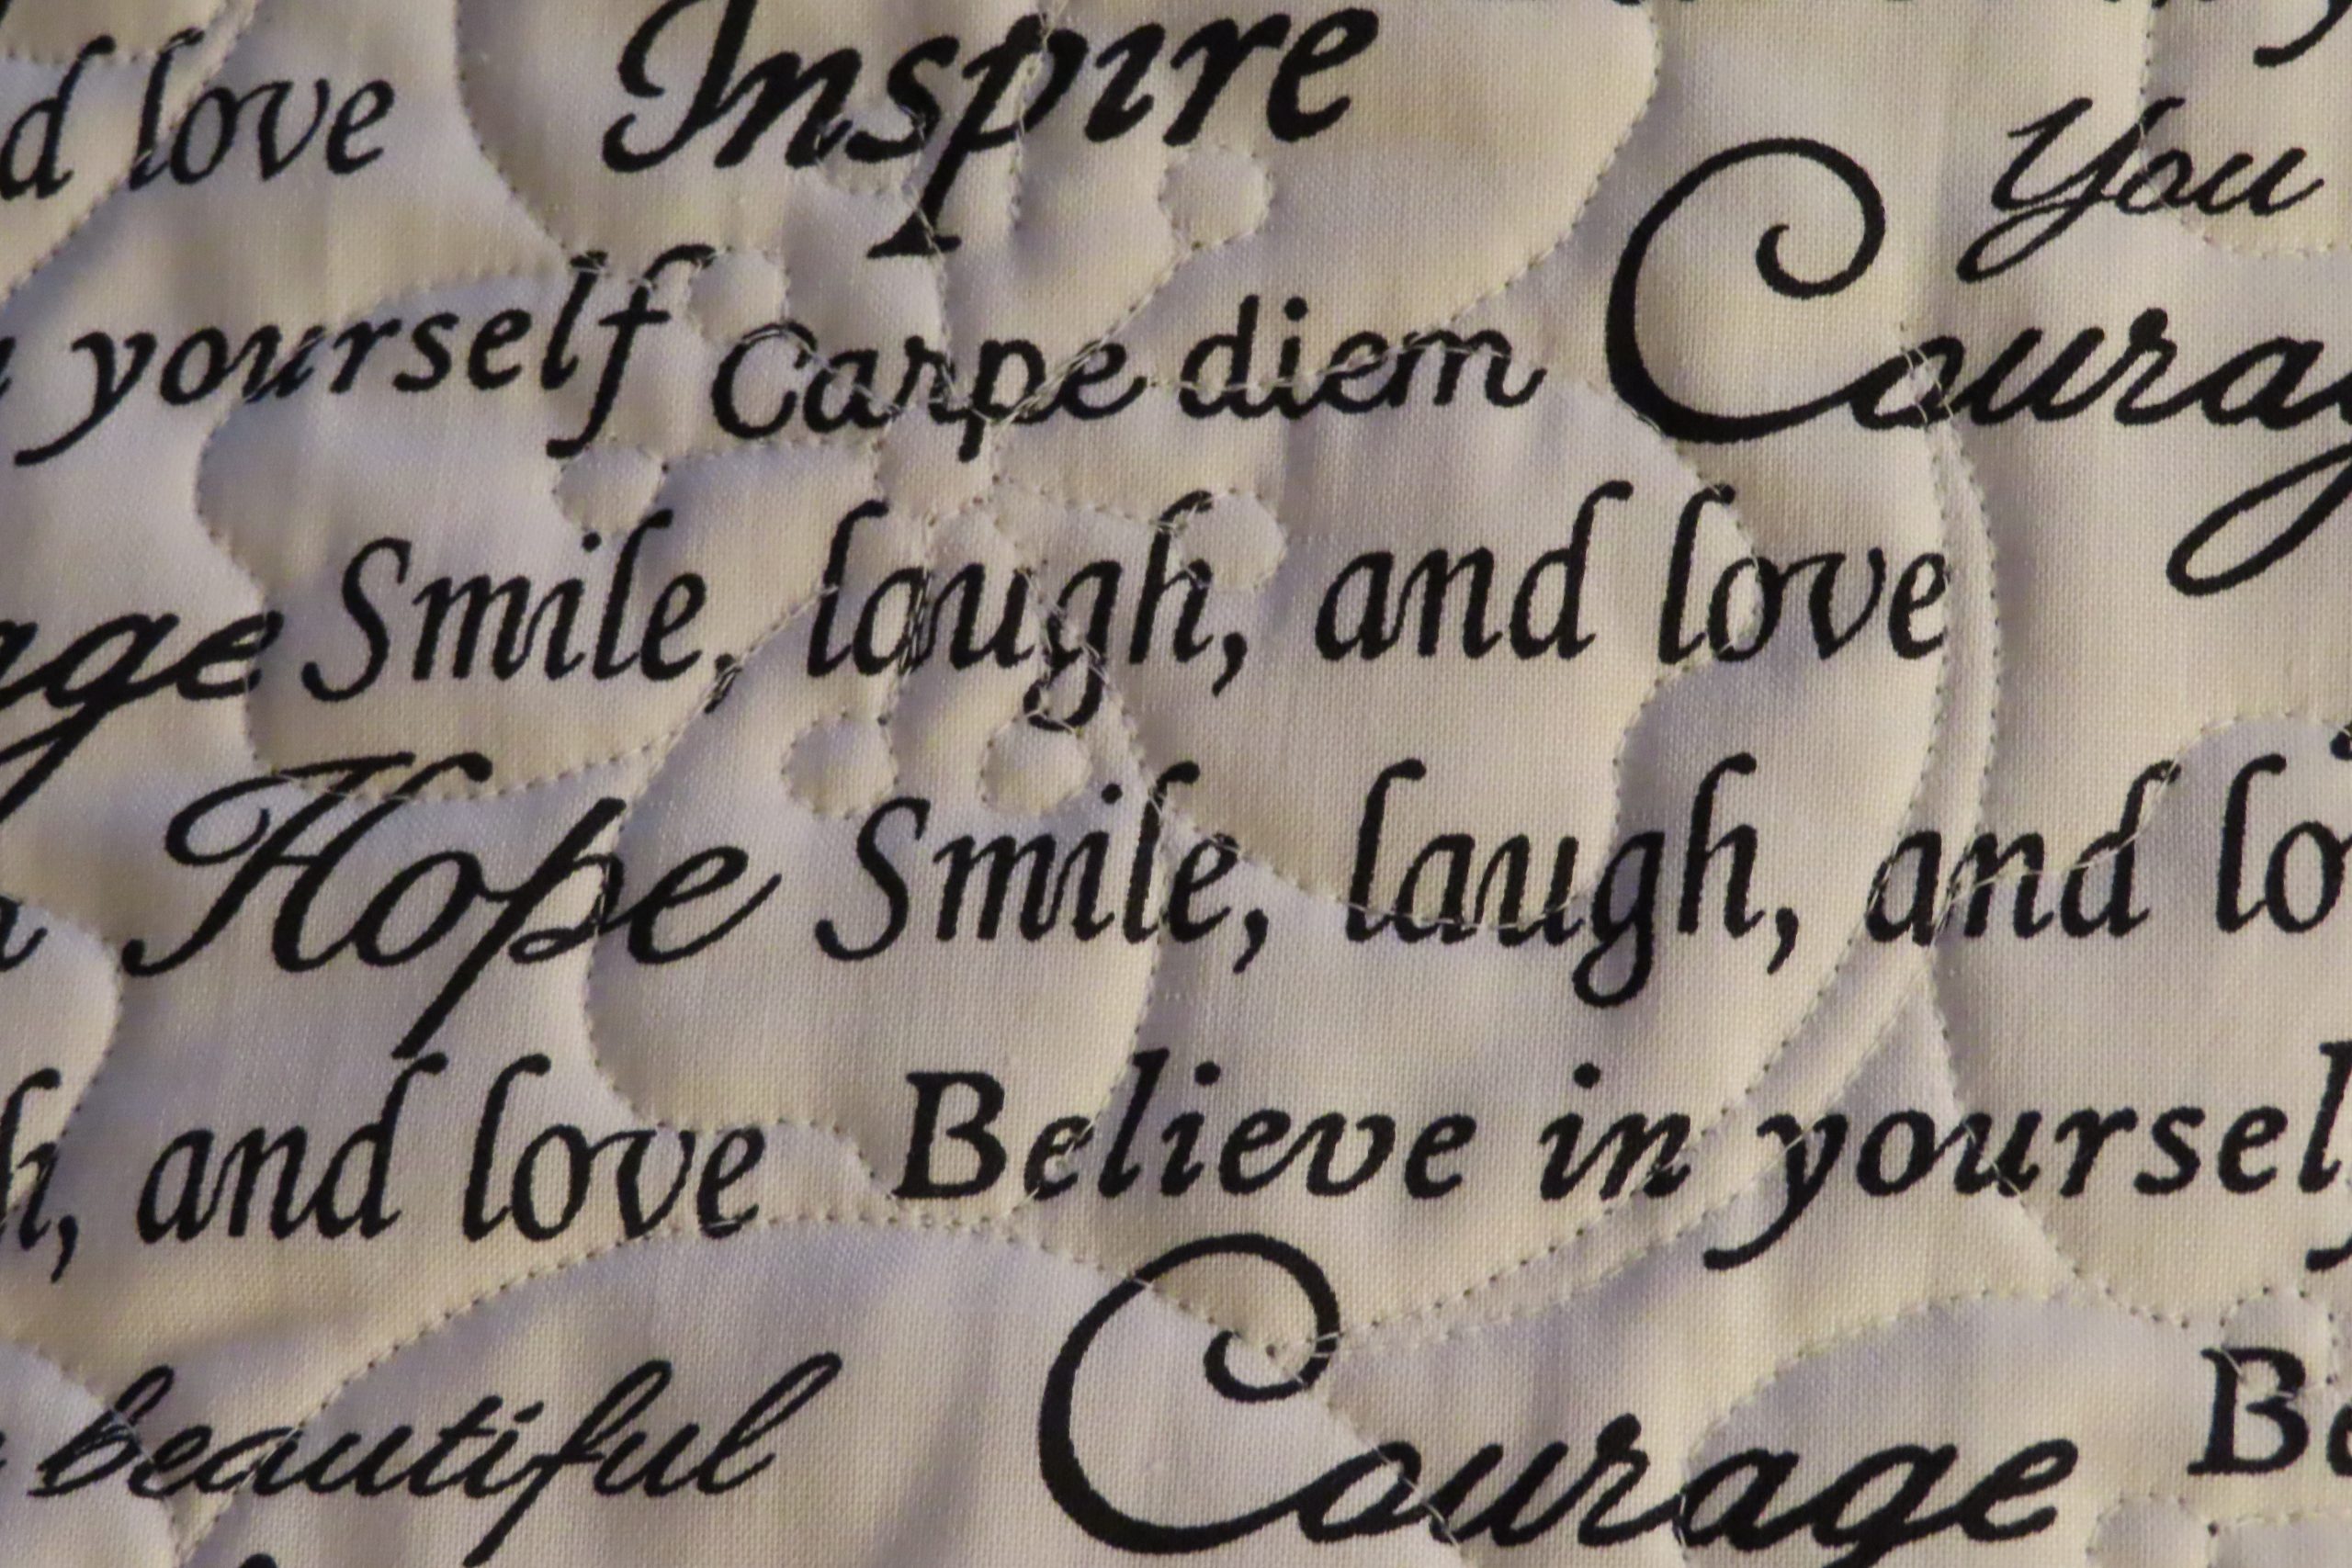 d love Inspire
You
yourself Carpe diem Courag
age Smile, laugh, and love
Hope Smile, laugh, and lo
h, and love Believe in yourself
beautiful Courage Be